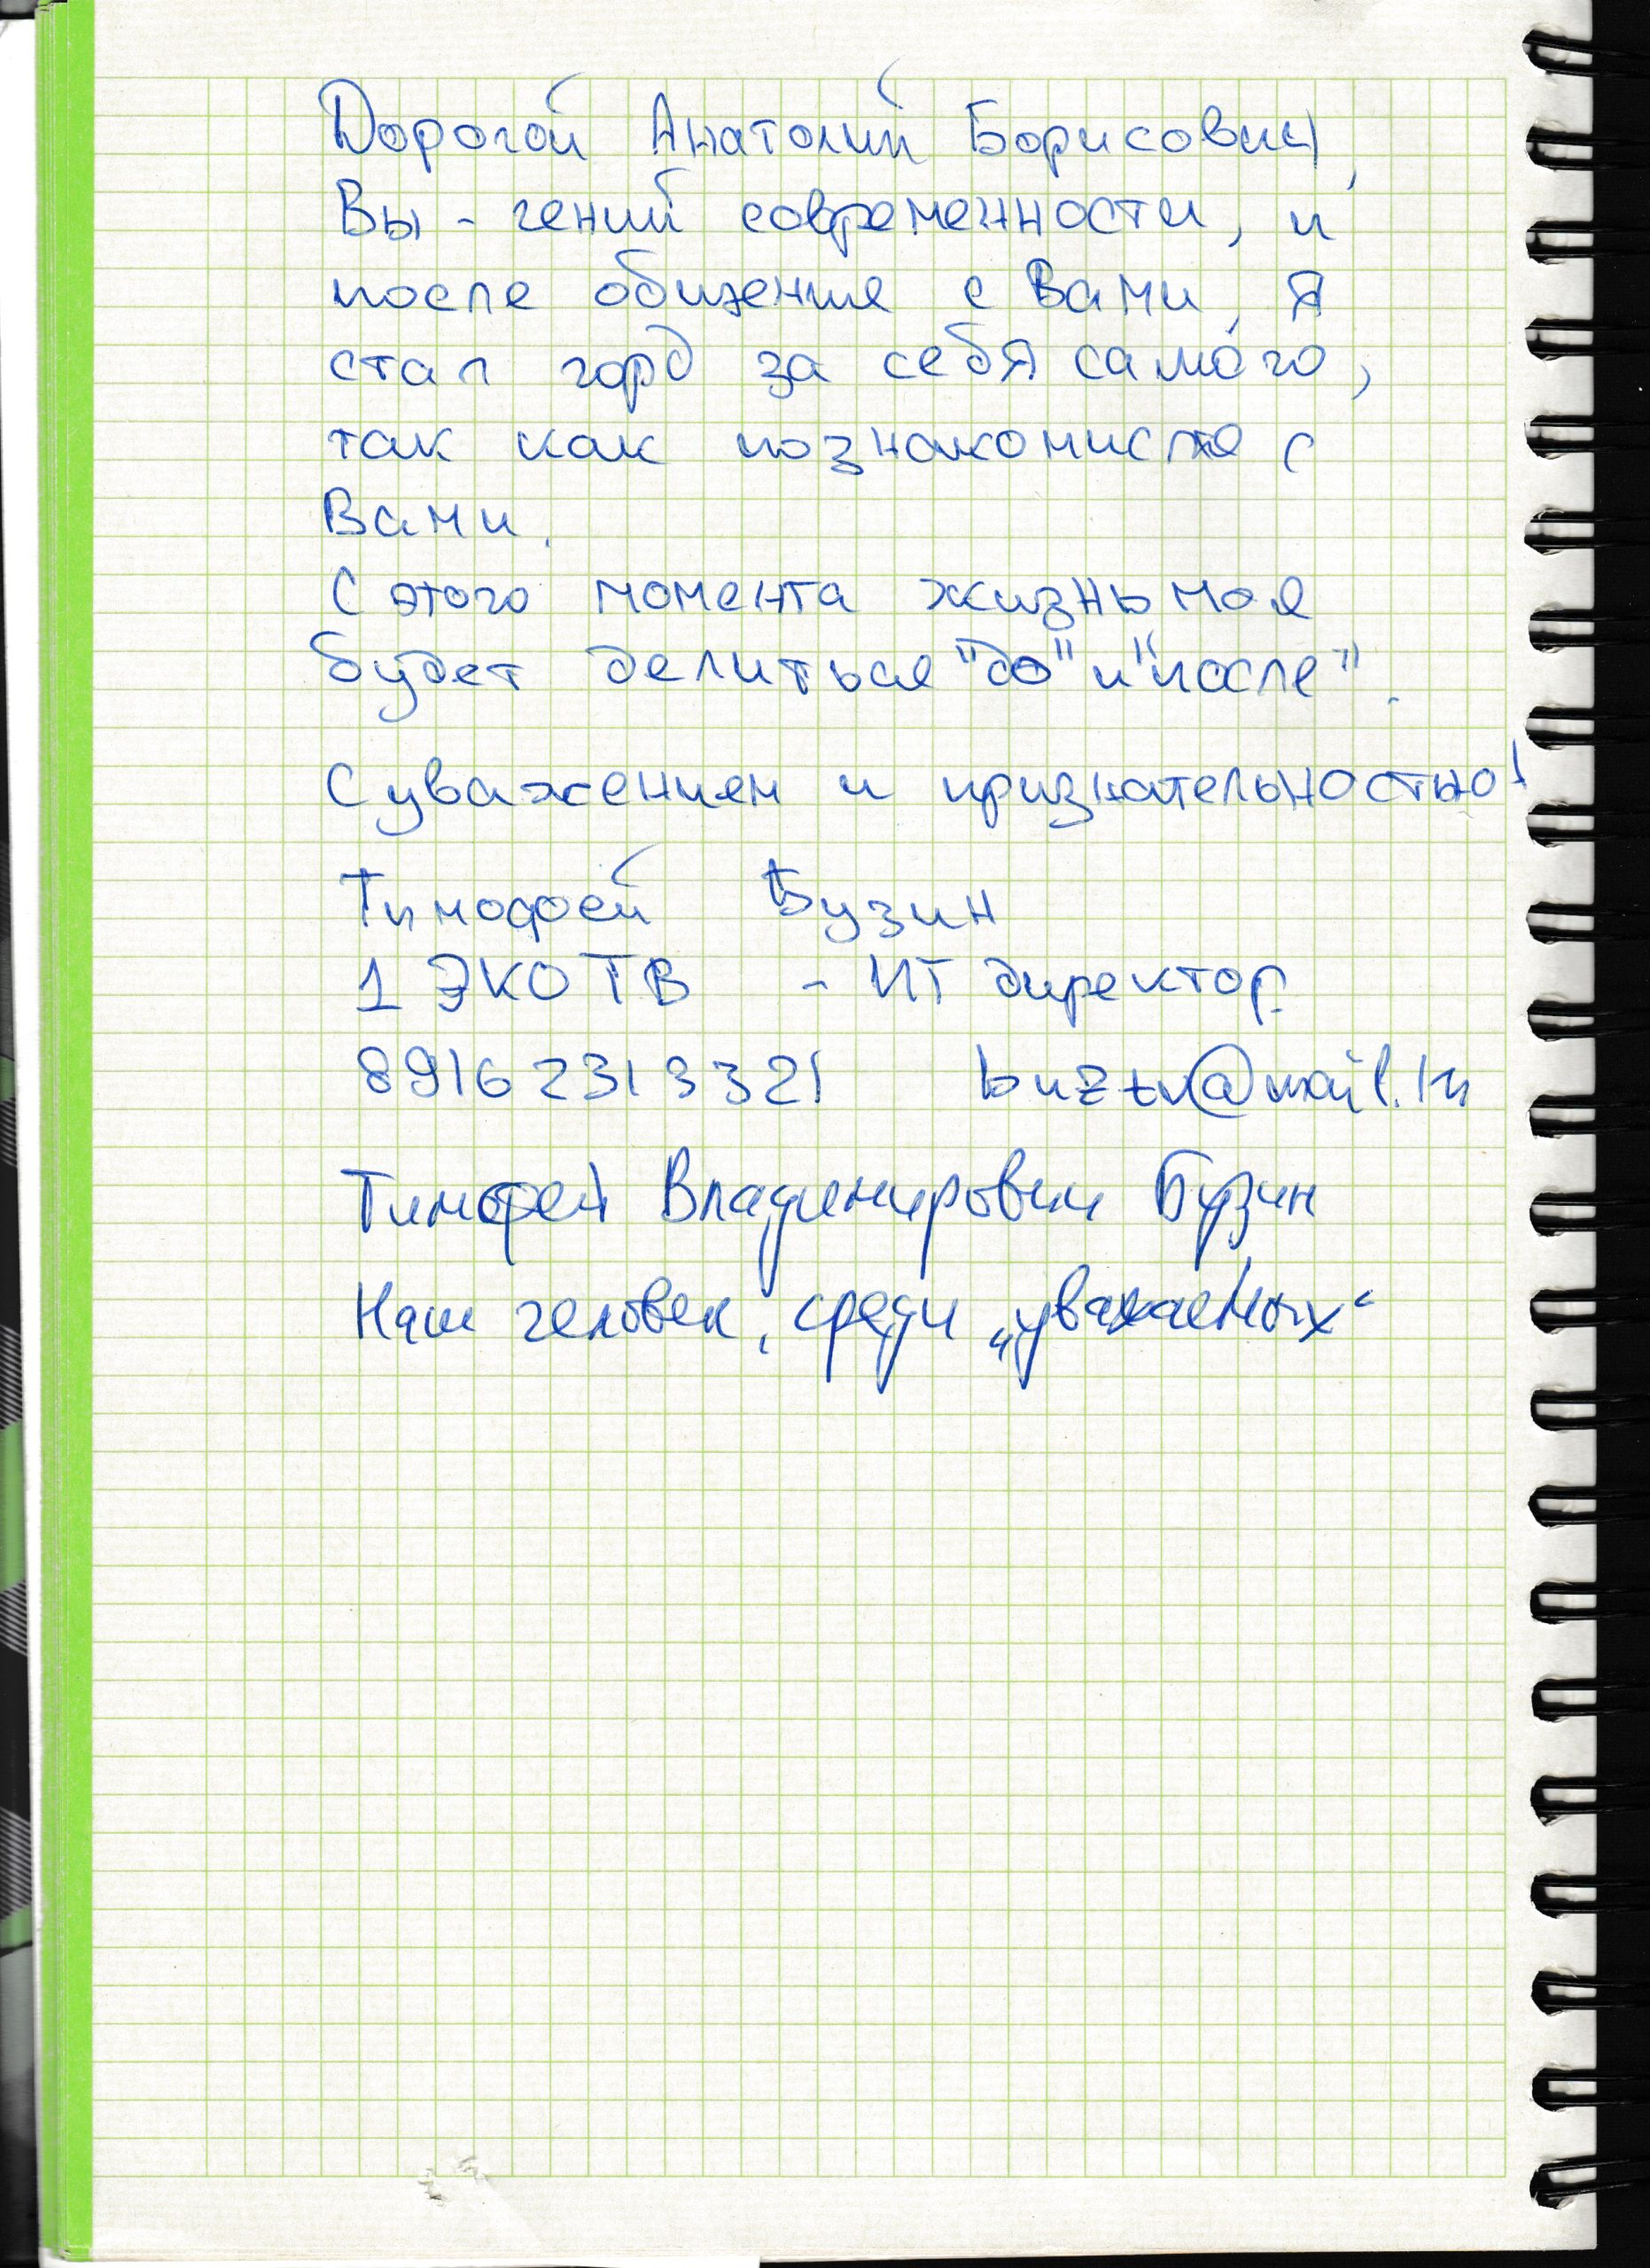 Дорогой Анатолий Борисович,
Вы - гений современности, и
после общения с Вами, я
стал горд за себя самого,
так как познакомился с
Вами.
С этого момента жизнь моя
будет делиться "до" и "после".
С уважением и признательностью!
Тимофей Бузин
1 ЭКО ТВ - ИТ директор.
89162313321 buztv@mail.ru
Тимофей Владимирович Бузин
Наш человек, среди „уважаемых“